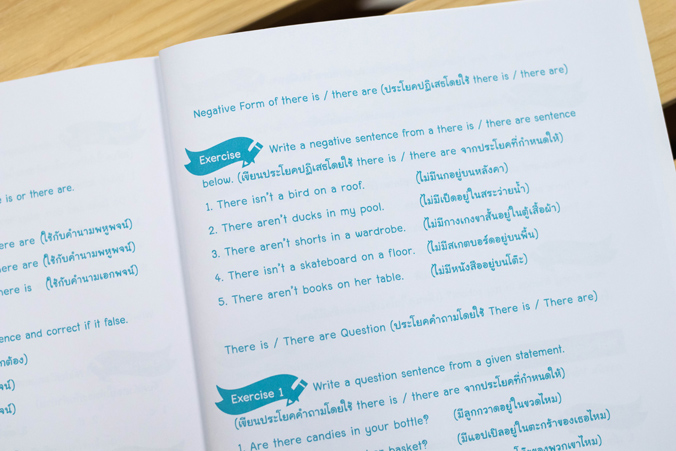 e is or there are.
ere are (ใช้กับคำนามพหูพจน์)
ere are (ใช้กับคำนามพหูพจน์)
here is (ใช้กับคำนามเอกพจน์)
ence and correct if it false.
Negative Form of there is / there are (ประโยคปฏิเสธโดยใช้ there is / there are)
Exercise Write a negative sentence from a there is / there are sentence
below. (เขียนประโยคปฏิเสธโดยใช้ there is / there are จากประโยคที่กำหนดให้)
1. There isn't a bird on a roof. (ไม่มีนกอยู่บนหลังคา)
2. There aren't ducks in my pool. (ไม่มีเป็ดอยู่ในสระว่ายน้ำ)
3. There aren't shorts in a wardrobe. (ไม่มีกางเกงขาสั้นอยู่ในตู้เสื้อผ้า)
4. There isn't a skateboard on a floor. (ไม่มีสเกตบอร์ดอยู่บนพื้น)
5. There aren't books on her table. (ไม่มีหนังสืออยู่บนโต๊ะ)
There is / There are Question (ประโยคคำถามโดยใช้ There is / There are)
Exercise 1 Write a question sentence from a given statement.
(เขียนประโยคคำถามโดยใช้ there is / there are จากประโยคที่กำหนดให้)
1. Are there candies in your bottle? (มีลูกกวาดอยู่ในขวดไหม)
basket? (มีแอปเปิลอยู่ในตะกร้าของเธอไหม)
ของพวกเขาไหม)